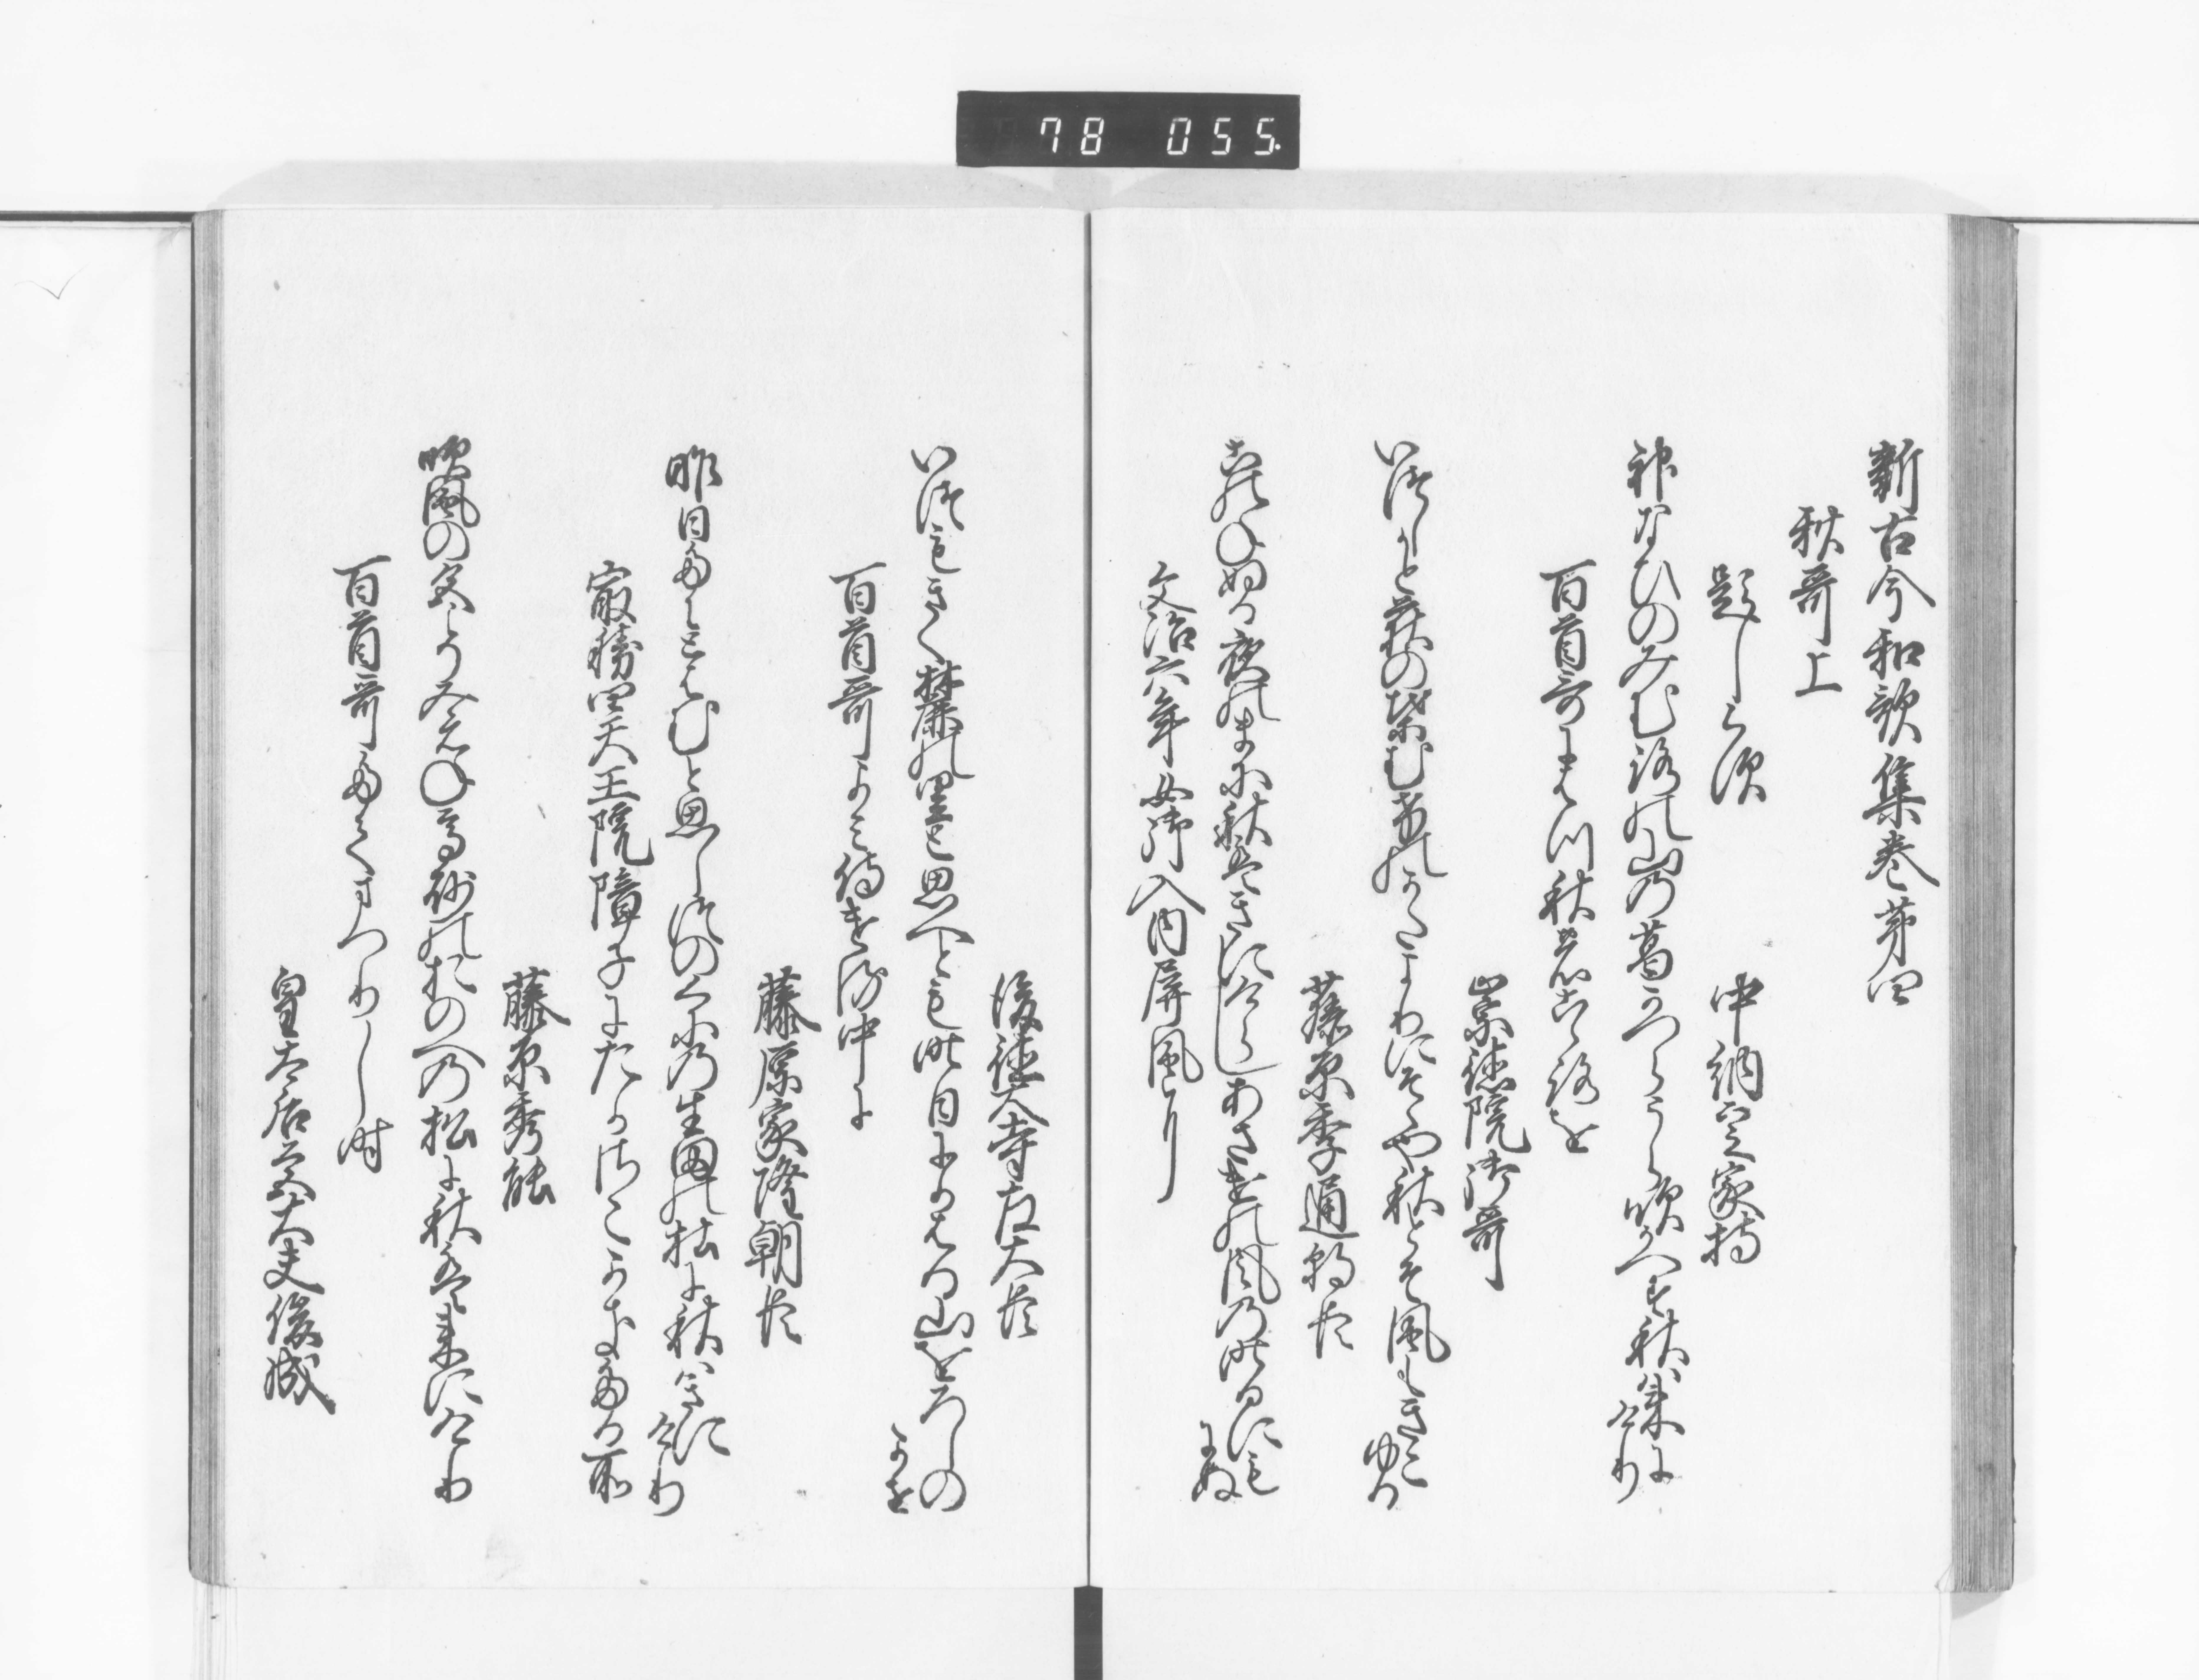 78 055
新古今和歌集巻第四
秋哥上
題しらす
中納言家持
神なひのみむろの山の葛かつらうら吹かへす秋は来に
けり
百首哥にはつ秋の心を
崇徳院御哥
いつしかと荻の葉むけのかたよりにそゝや秋とそ風もきこ
ゆる
藤原季通朝臣
このねぬる夜のまに秋はきにけらしあさけの風の昨日にも
にぬ
文治六年女御入内屏風に
後徳大寺左大臣
いつもきく麓の里と思へとも昨日にかはる山をろしの
かせ
百首哥よみ侍ける中に
藤原家隆朝臣
昨日たにとはむと思しつのくにの生田の杜に秋はきに
けり
最勝四天王院障子にたかさこかきたる所
藤原秀能
吹風の色こそみえね高砂のおのへの松に秋は来にけり
百首哥たてまつりし時
皇太后宮大夫俊成